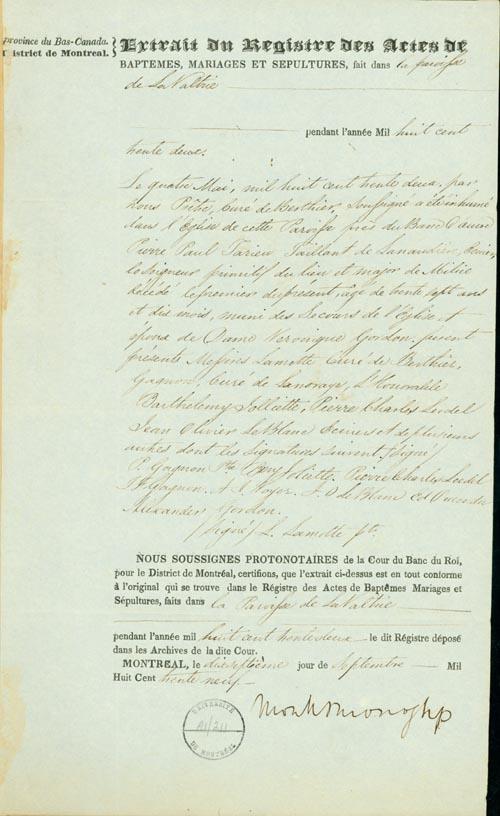 province du Bas-Canada.
District de Montreal.
Extrait du Registre des Actes de
BAPTEMES, MARIAGES ET SEPULTURES, fait dans la paroisse
de LaValtrie
pendant l'année Mil huit cent
trente deux.
Le quatre Mai, mil huit cent trente deux, par
nous Prêtre, Curé de Berthier, Soussigné a été inhumé
dans l'Eglise de cette Paroisse près du Banc
Pierre Paul Tarieu Taillant de Lanaudière, Ecuier,
Coseigneur primitif du lieu et major de Milice
décédé le premier du présent, agé de trente sept ans
et dix mois, muni des Secours de l'Eglise, et
époux de Dame Veronique Gordon. furent
présents Messires Lamotte Curé de Berthier,
Gagnon, Curé de Lanoraye, L'Honorable
Barthelemy Jolliette, Pierre Charles Loedel
Jean Olivier LeBlanc Ecuiers et de plusieurs
autres dont les signatures suivent. /Signé/
P. Gagnon Ptre Bmy Joliette. Pierre Charles Loedel
Gagnon. Noyer. J. O LeBlanc
Alexander Gordon.
/Signé/ L. Lamotte ptr.
NOUS SOUSSIGNES PROTONOTAIRES de la Cour du Banc du Roi,
pour le District de Montréal, certifions, que l'extrait ci-dessus est en tout conforme
à l'original qui se trouve dans le Régistre des Actes de Baptêmes Mariages et
Sépultures, faits dans la Paroisse de LaValtrie
pendant l'année mil huit cent trente deux le dit Régistre déposé
dans les Archives de la dite Cour.
MONTREAL, le dixseptième jour de Septembre Mil
Huit Cent trente neuf
UNIVERSITÉ
A1/211
DE MONTRÉAL